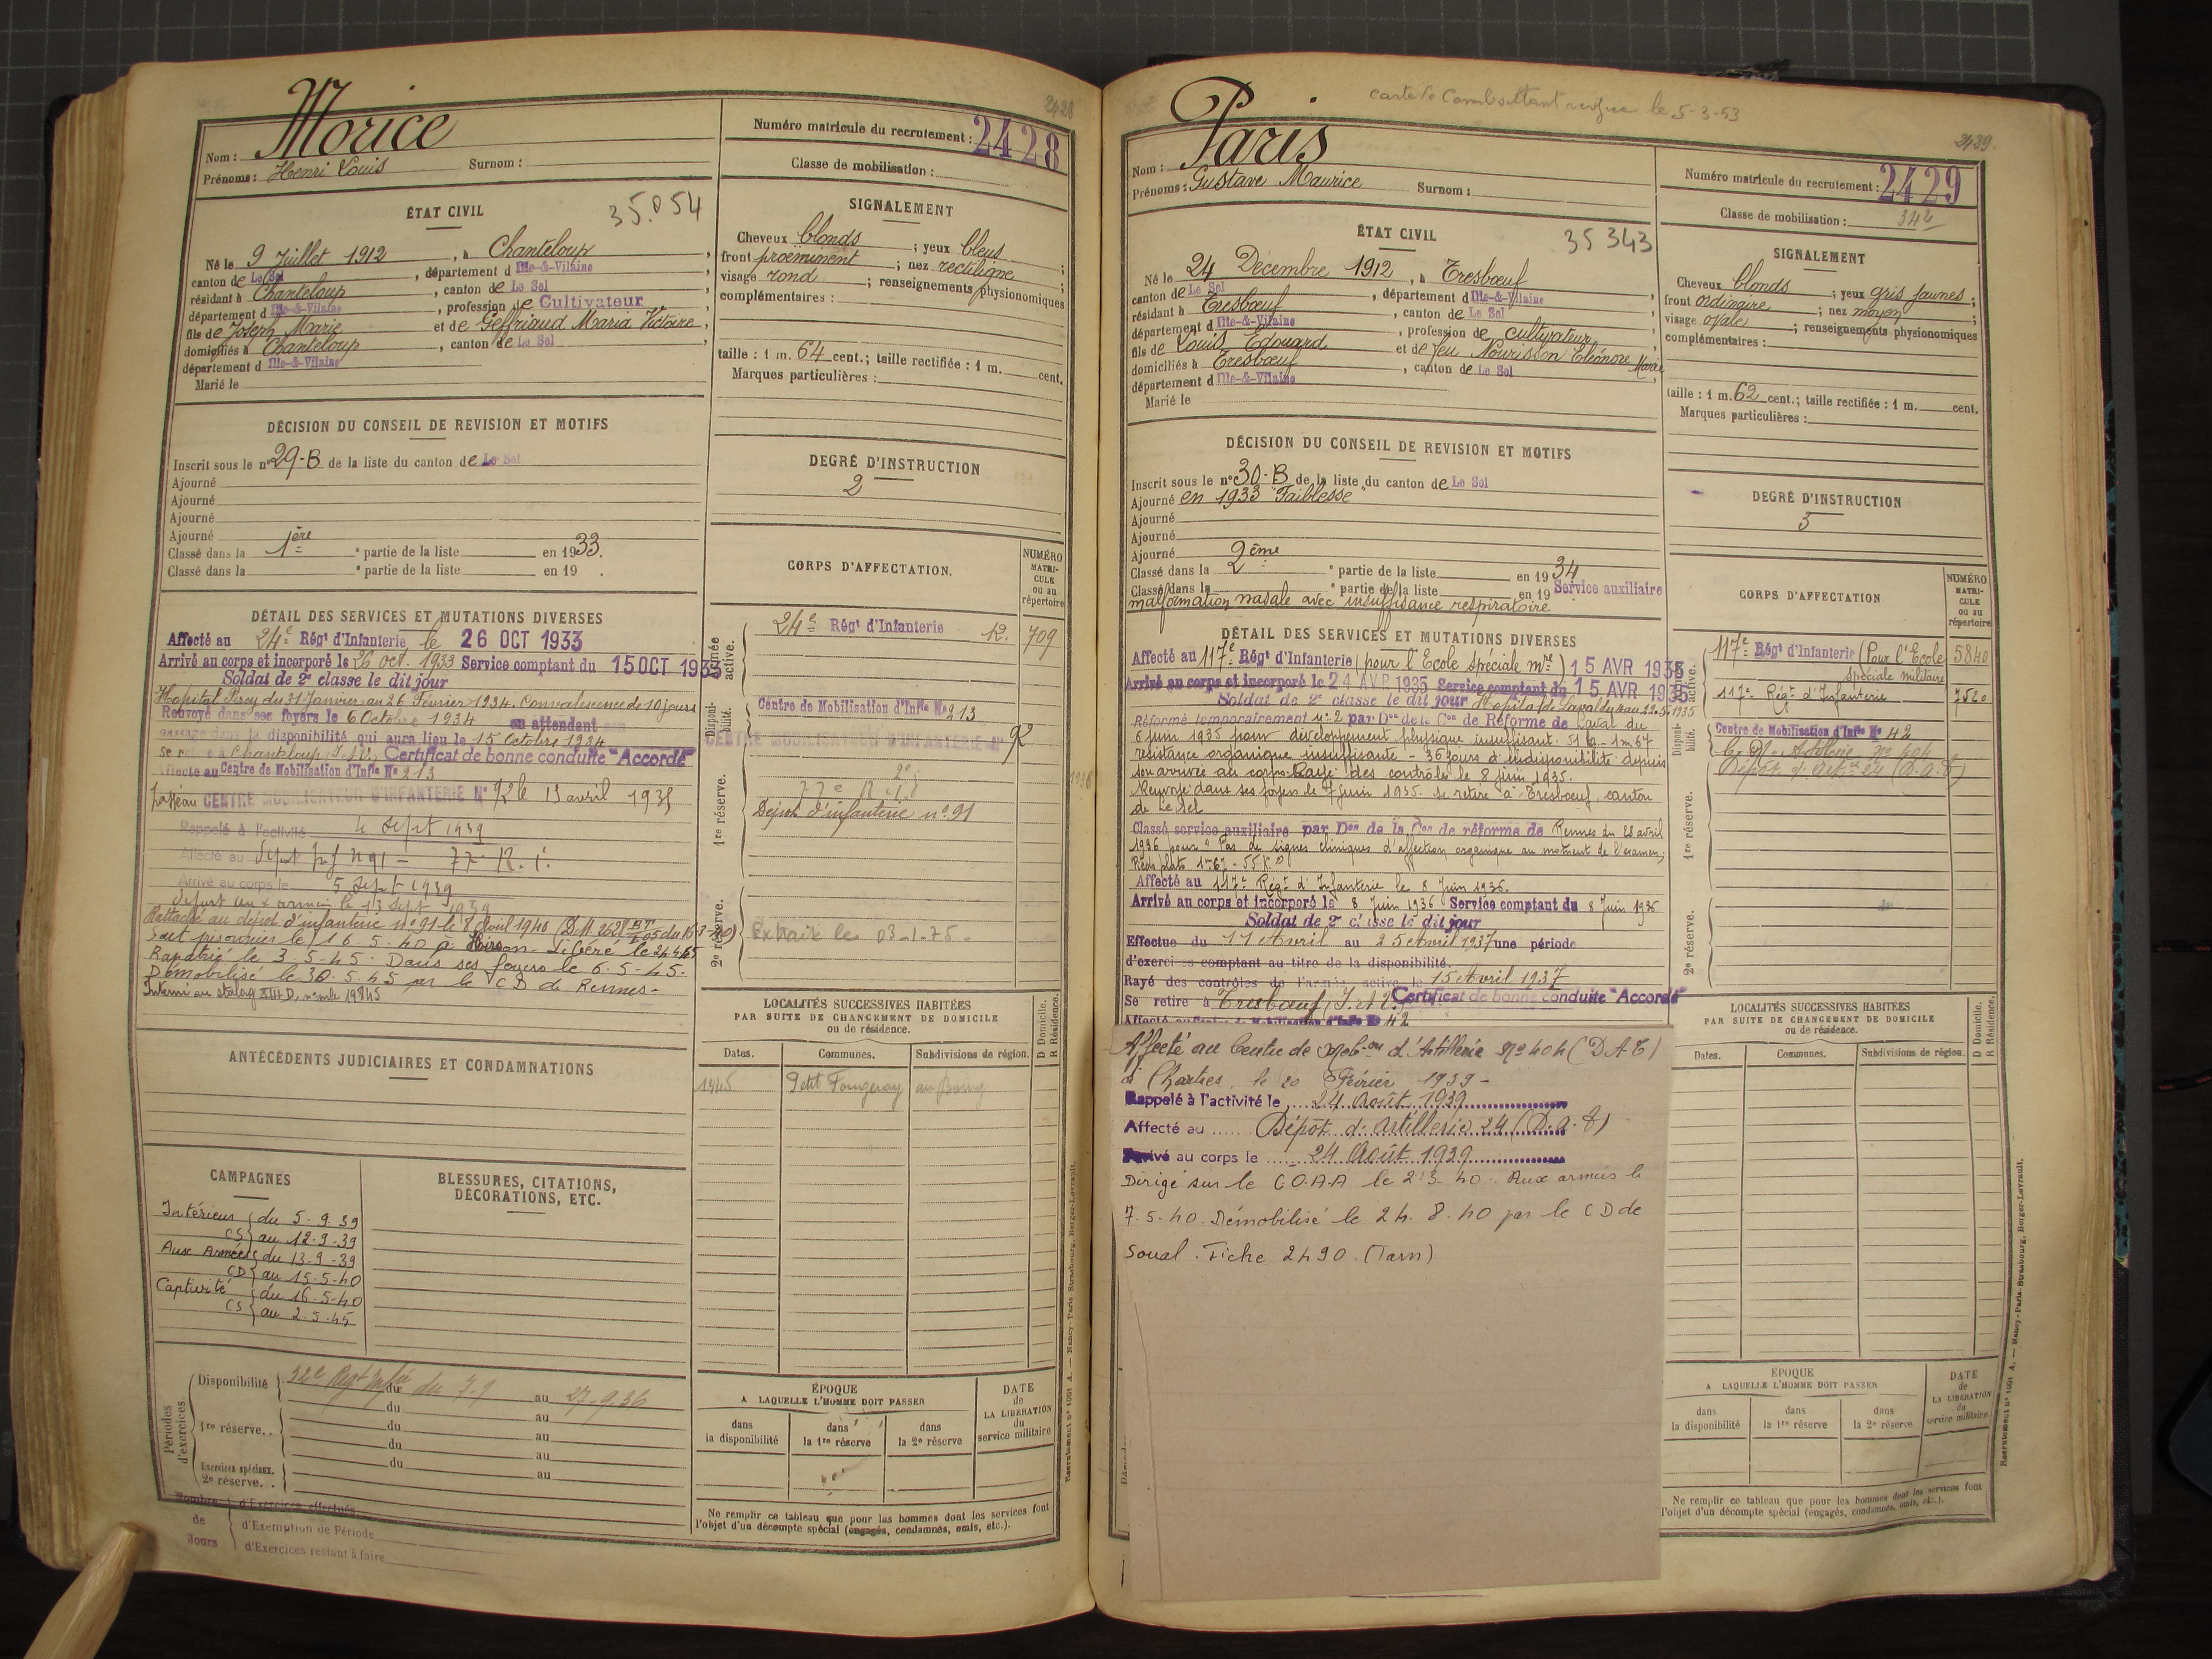 2428
Nom : Morice
Prénoms : Henri Louis Surnom :
Numéro matricule du recrutement : 2428
Classe de mobilisation :
ÉTAT CIVIL
35.054
Né le 9 Juillet 1912, à Chanteloup,
canton de Le Sel, département d Ille-&-Vilaine,
résidant à Chanteloup, canton de Le Sel,
département d Ille-&-Vilaine, profession de Cultivateur,
fils de Joseph Marie et de Geffriaud Maria Victoire,
domiciliés à Chanteloup, canton de Le Sel,
département d Ille-&-Vilaine
Marié le
SIGNALEMENT
Cheveux blonds ; yeux bleus ;
front proëminent ; nez rectiligne ;
visage rond ; renseignements physionomiques
complémentaires :
taille : 1 m. 64 cent.; taille rectifiée : 1 m. cent.
Marques particulières :
DÉCISION DU CONSEIL DE REVISION ET MOTIFS
Inscrit sous le n° 29-B de la liste du canton de Le Sel
Ajourné
Ajourné
Ajourné
Ajourné
Classé dans la 1ère partie de la liste en 1933.
Classé dans la partie de la liste en 19 .
DEGRÉ D'INSTRUCTION
2
DÉTAIL DES SERVICES ET MUTATIONS DIVERSES
Affecté au 24e Régt d'Infanterie le 26 OCT 1933
Arrivé au corps et incorporé le 26 oct. 1933 Service comptant du 15 OCT 1933
Soldat de 2e classe le dit jour
Hopital Percy du 31 Janvier au 26 Février 1934. Convalescence de 10 jours
Renvoyé dans ses foyers le 6 Octobre 1934 en attendant son
passage dans la disponibilité qui aura lieu le 15 Octobre 1934
Se retire à Chanteloup I.&V. Certificat de bonne conduite "Accordé"
Affecté au Centre de Mobilisation d'Infie No 213
Passé au CENTRE MOBILISATEUR D'INFANTERIE N° 92 le 15 avril 1935
Rappelé à l'activité le sept 1939
Affecté au dépôt Inf n 91 - 77e R.I.
Arrivé au corps le 5 Sept 1939
départ aux armées le 13 sept 1939
Rattaché au dépot d'infanterie n° 91 le 8 Avril 1940
Fait prisonnier le 16-5-40 à Hirson - Libéré le 24.4.45
Rapatrié le 3.5.45. Dans ses foyers le 6.5.45.
Démobilisé le 30.5.45 par le C D de Rennes.
Interné au stalag XIII D, n° mle 19845
CORPS D'AFFECTATION.
NUMÉRO MATRICULE ou au répertoire
Armée active.
24e Régt d'Infanterie 12. 709
Disponibilité.
Centre de Mobilisation d'Infie No 213
CENTRE MOBILISATEUR D'INFANTERIE N° 92
1re réserve.
77e R.I.
Dépot d'infanterie n° 91
2e réserve.
Extrait le 03-1-75.
LOCALITÉS SUCCESSIVES HABITÉES
PAR SUITE DE CHANGEMENT DE DOMICILE
ou de résidence.
D Domicile.
R Résidence.
Dates. Communes. Subdivisions de région.
1945 Petit Fougeray au Bourg
ANTÉCÉDENTS JUDICIAIRES ET CONDAMNATIONS
CAMPAGNES
BLESSURES, CITATIONS,
DÉCORATIONS, ETC.
Intérieur du 5-9-39
CS au 12-9-39
Aux Armées du 13-9-39
CD au 15-5-40
Captivité du 16-5-40
CS au 2-5-45
Périodes d'exercices.
Disponibilité du 7-9 au 27-9-36
1re réserve.. du au
du au
du au
Exercices spéciaux.
2e réserve.. du au
Nombre de Jours
d'Exercices effectués
d'Exemption de Période
d'Exercices restant à faire
ÉPOQUE
A LAQUELLE L'HOMME DOIT PASSER
dans la disponibilité
dans la 1re réserve
dans la 2e réserve
DATE de LA LIBÉRATION du service militaire
Ne remplir ce tableau que pour les hommes dont les services font
l'objet d'un décompte spécial (engagés, condamnés, omis, etc.).
Recrutement n° 1001 A. — Nancy-Paris-Strasbourg, Berger-Levrault.
carte de Combattant le 5-3-53
2429.
Nom : Paris
Prénoms : Gustave Maurice Surnom :
Numéro matricule du recrutement : 2429
Classe de mobilisation :
ÉTAT CIVIL
35 343
Né le 24 Décembre 1912, à Tresbœuf,
canton de Le Sel, département d Ille-&-Vilaine,
résidant à Tresbœuf, canton de Le Sel,
département d Ille-&-Vilaine, profession de cultivateur,
fils de Louis Edouard et de feu Nourisson Eléonore Marie
domiciliés à Tresbœuf, canton de Le Sel,
département d Ille-&-Vilaine
Marié le
SIGNALEMENT
Cheveux blonds ; yeux gris jaunes ;
front ordinaire ; nez moyen ;
visage ovale ; renseignements physionomiques
complémentaires :
taille : 1 m. 62 cent.; taille rectifiée : 1 m. cent.
Marques particulières :
DÉCISION DU CONSEIL DE REVISION ET MOTIFS
Inscrit sous le n° 30-B de la liste du canton de Le Sel
Ajourné en 1933 "Faiblesse"
Ajourné
Ajourné
Ajourné
Classé dans la 2ème partie de la liste en 1934
Classé dans la partie de la liste en 19 Service auxiliaire
malformation nasale avec insuffisance respiratoire
DEGRÉ D'INSTRUCTION
3
DÉTAIL DES SERVICES ET MUTATIONS DIVERSES
Affecté au 117e Régt d'Infanterie (pour l'Ecole spéciale mre) 15 AVR 1935
Arrivé au corps et incorporé le 24 AVR 1935 Service comptant du 15 AVR 1935
Soldat de 2e classe le dit jour Hopital de Laval du au 22.5.1935
Réformé temporairement n° 2 par Don de la Con de Réforme de Laval du
6 juin 1935 pour développement physique insuffisant. 51 k - 1m,67
résistance organique insuffisante - 36 jours d'indisponibilité depuis
son arrivée au corps. Rayé des contrôles le 8 juin 1935.
Renvoyé dans ses foyers le 7 juin 1935. Se retire à Tresbœuf, canton
de Le Sel
Classé service auxiliaire par Don de la Con de réforme de Rennes du 28 avril
1936 pour "Pas de signes cliniques d'affection organique au moment de l'examen,
Pieds plats 1m67 - 55 k"
Affecté au 117e Régt d'Infanterie le 8 Juin 1936.
Arrivé au corps et incorporé le 8 Juin 1936 Service comptant du 8 Juin 1936
Soldat de 2e classe le dit jour
Effectue du 11 Avril au 25 Avril 1937 une période
d'exercices comptant au titre de la disponibilité.
Rayé des contrôles de l'armée active le 15 Avril 1937
Se retire à Tresbœuf (I. et V.) Certificat de bonne conduite "Accordé"
Affecté au Centre de Mobilisation d'Infie No 42
Affecté au Centre de Mobon d'Artillerie No 404 (D A T)
à Chartres, le 20 Février 1939 -
Rappelé à l'activité le 24 Août 1939
Affecté au Dépôt d'Artillerie 24 (D.A.T)
Arrivé au corps le 24 Août 1939
Dirigé sur le C O.A.A le 2.3.40. Aux armées le
7.5.40. Démobilisé le 24.8.40 par le C D de
Soual. Fiche 2490. (Tarn)
CORPS D'AFFECTATION
NUMÉRO MATRICULE ou au répertoire
active.
117e Régt d'Infanterie (Pour l'Ecole Spéciale militaire 5840
117e Régt d'Infanterie 7520
Disponibilité.
Centre de Mobilisation d'Infie No 42
C. M. Artillerie No 404
Dépôt d'Artie 24 (D.A.T)
1re réserve.
2e réserve.
LOCALITÉS SUCCESSIVES HABITÉES
PAR SUITE DE CHANGEMENT DE DOMICILE
ou de résidence.
D Domicile.
R Résidence.
Dates. Communes. Subdivisions de région.
ÉPOQUE
A LAQUELLE L'HOMME DOIT PASSER
dans la disponibilité
dans la 1re réserve
dans la 2e réserve
DATE de LA LIBÉRATION du service militaire
Ne remplir ce tableau que pour les hommes dont les services font
l'objet d'un décompte spécial (engagés, condamnés, omis, etc.).
Recrutement n° 1001 A. — Nancy-Paris-Strasbourg, Berger-Levrault.